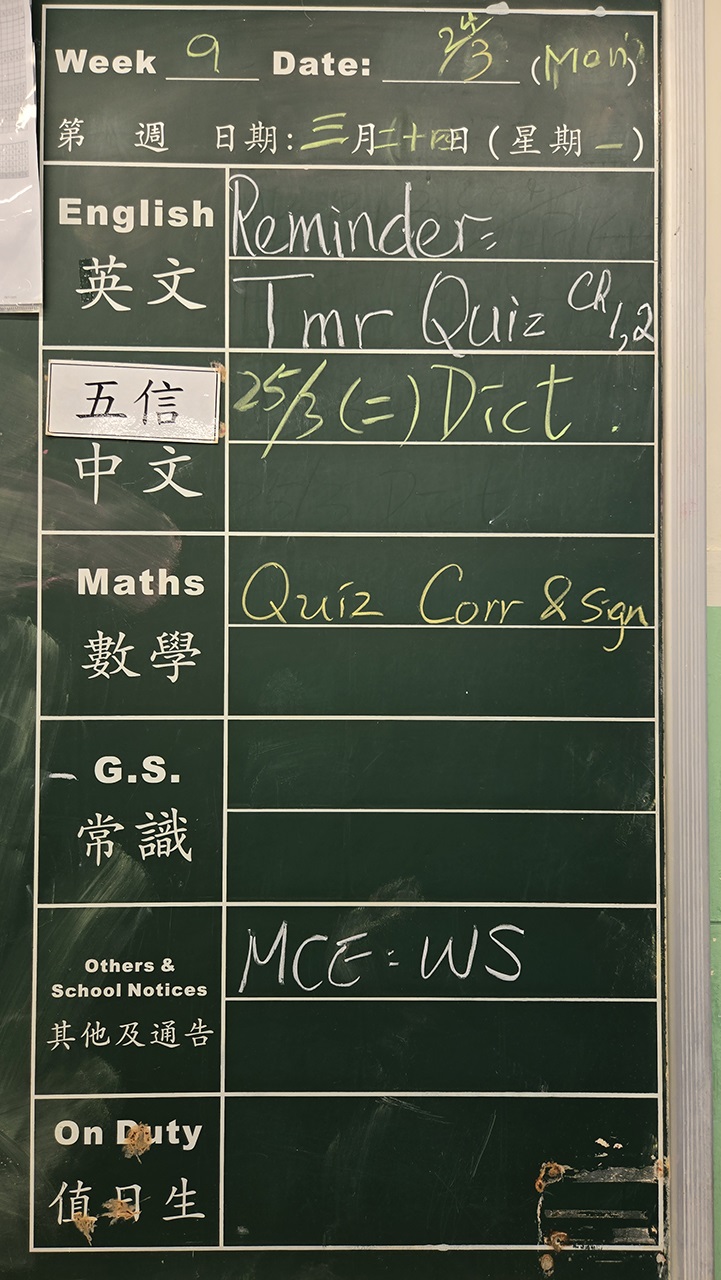 Week 9 Date: 24/3 (Mon)
第 週 日期: 三月二十四日 (星期一)
English
英文
Reminder:
Tmr Quiz Ch 1,2
五信
25/3 (二) Dict.
中文
Maths
數學
Quiz Corr & Sign
G.S.
常識
Others &
School Notices
其他及通告
MCE: WS
On Duty
值日生